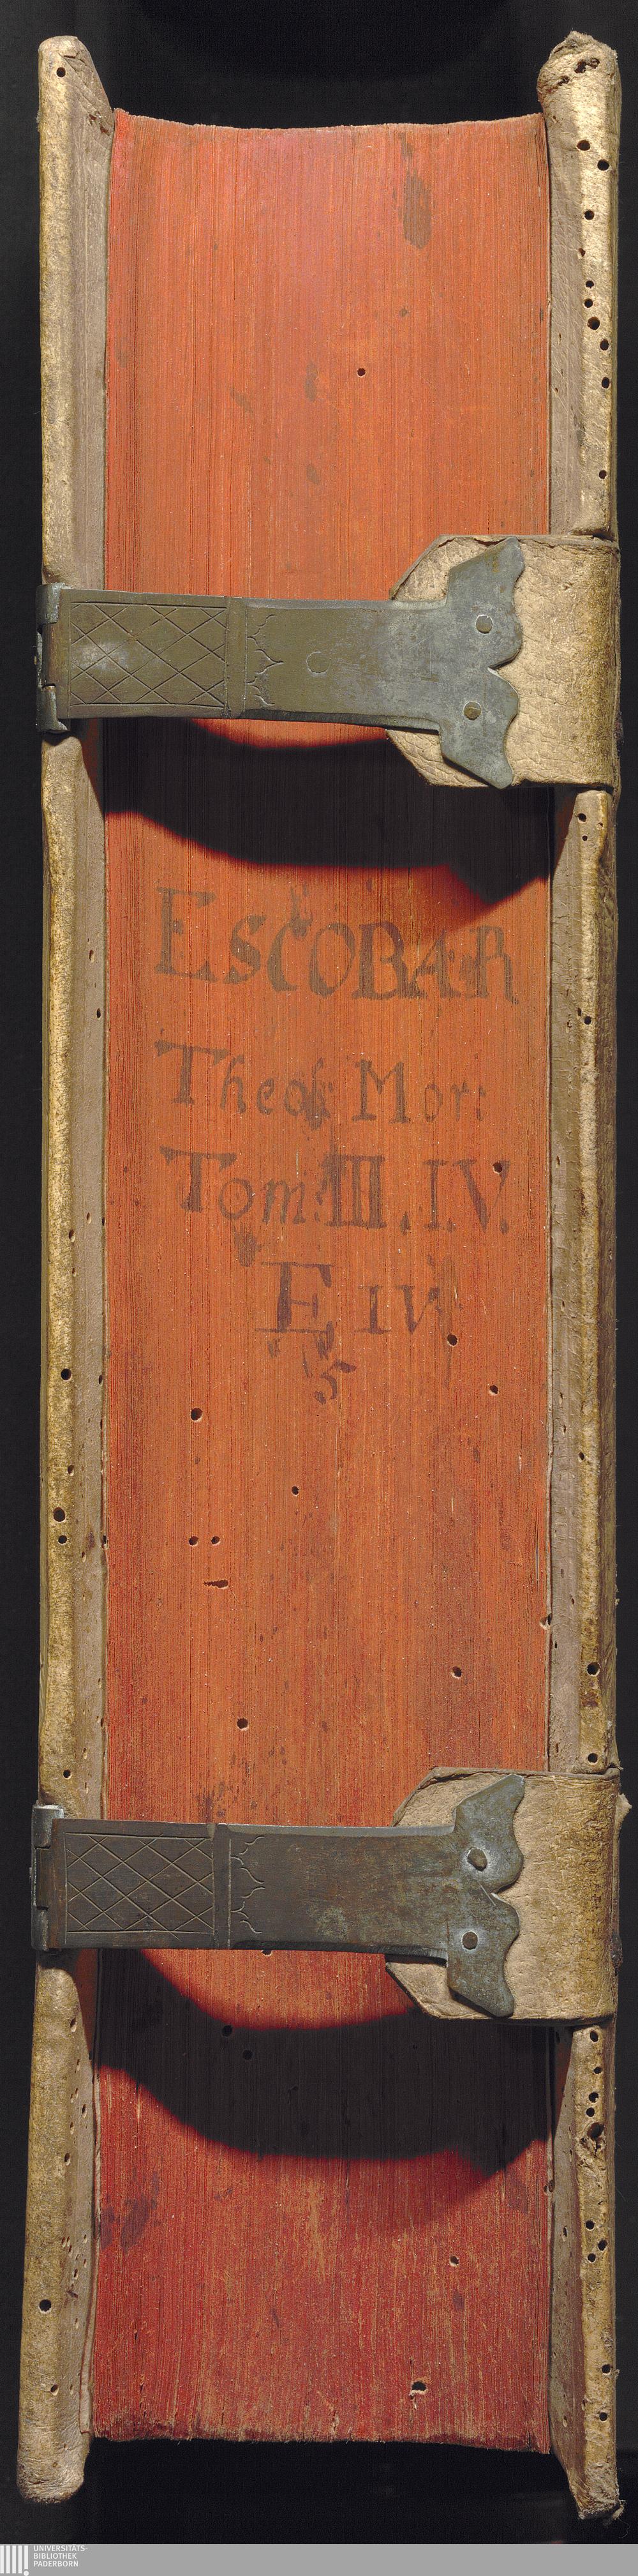 ESCOBAR
Theol: Mor:
Tom: III. IV.
E IV
5
UNIVERSITÄTS-
BIBLIOTHEK
PADERBORN